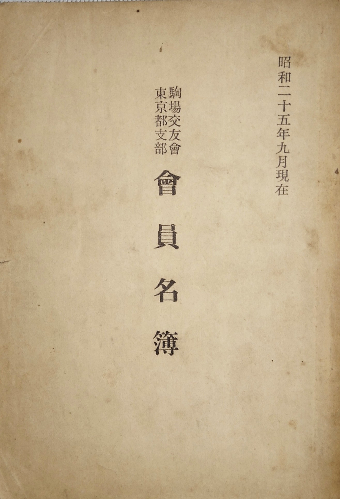 昭和二十五年九月現在
駒場交友會
東京都支部
會員名簿